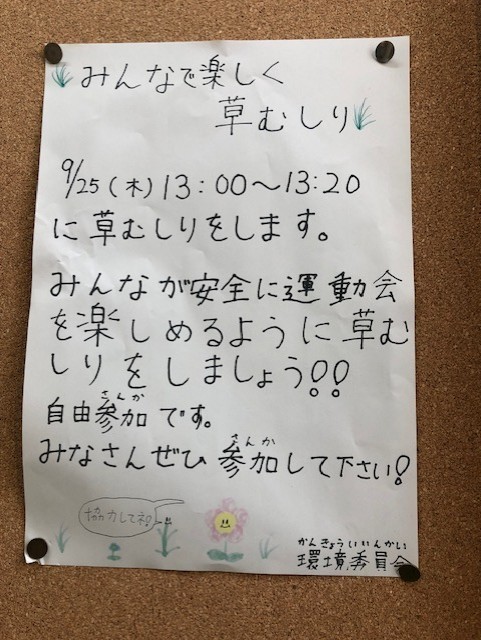 みんなで楽しく
草むしり
9/25(木)13:00～13:20
に草むしりをします。
みんなが安全に運動会
を楽しめるように草む
しりをしましょう!!
さんか
自由参加です。
さんか
みなさんぜひ参加して下さい!
協力してネ!
かんきょういいんかい
環境委員会